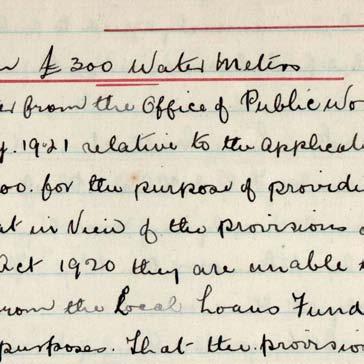 n £300 Water Meters
er from the Office of Public Wo
y. 1921 relative to the applicat
00. for the purpose of providi
at in View of the provisions
Act 1920 they are unable
from the Local Loans Fund
purposes. That the provision